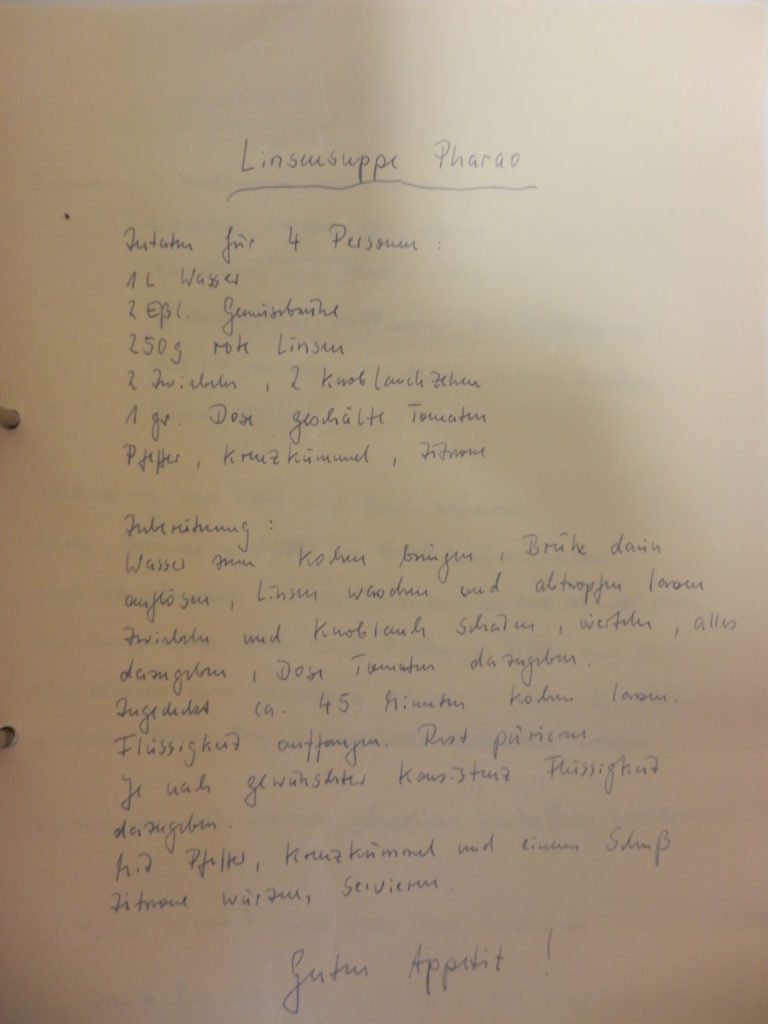 Linsensuppe Pharao
Zutaten für 4 Personen :
1 L Wasser
2 Eßl. Gemüsebrühe
250g rote Linsen
2 Zwiebeln , 2 Knoblauchzehen
1 gr. Dose geschälte Tomaten
Pfeffer , Kreuzkümmel , Zitrone
Zubereitung :
Wasser zum Kochen bringen , Brühe darin
auflösen , Linsen waschen und abtropfen lassen
Zwiebeln und Knoblauch schälen , vierteln , alles
dazugeben , Dose Tomaten dazugeben .
Zugedeckt ca. 45 Minuten kochen lassen .
Flüssigkeit auffangen . Rest pürieren .
Je nach gewünschter Konsistenz Flüssigkeit
dazugeben .
Mit Pfeffer , Kreuzkümmel und einem Schuß
Zitrone würzen , Servieren .
Guten Appetit !